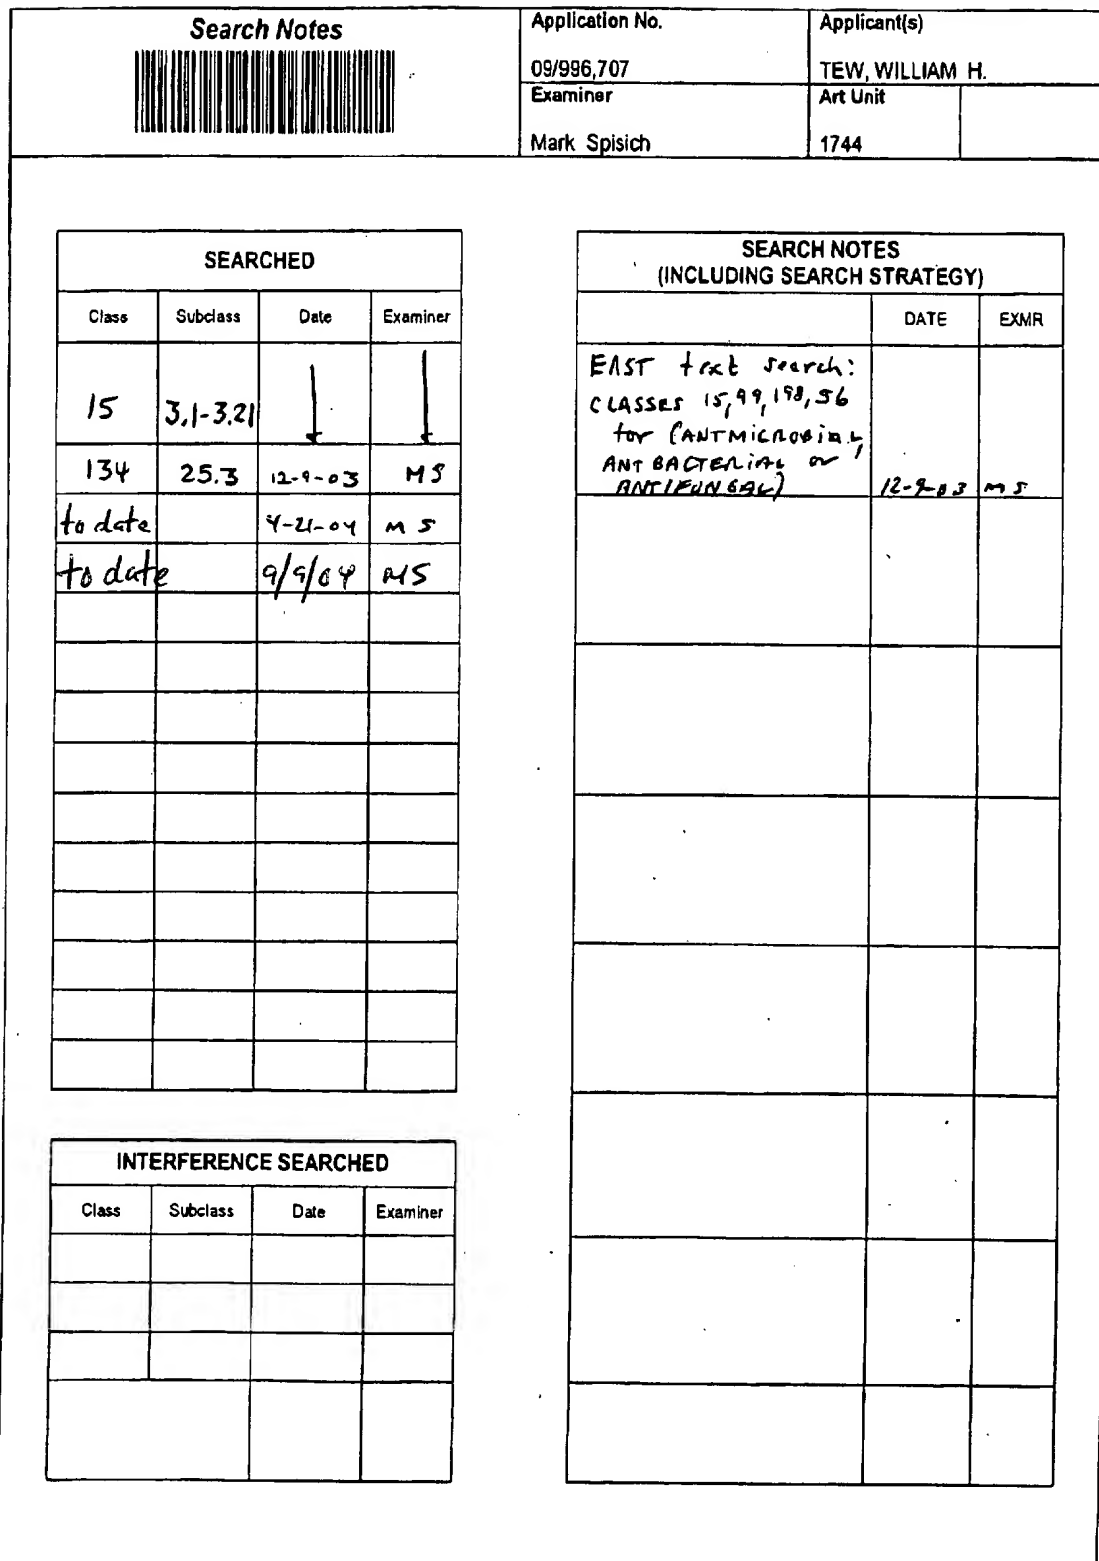 Search Notes
Application No.
09/996,707
Applicant(s)
TEW, WILLIAM H.
Examiner
Mark Spisich
Art Unit
1744
SEARCHED
Class Subclass Date Examiner
15 3.1-3.21
134 25.3 12-9-03 MS
to date 4-21-04 MS
to date 9/9/04 MS
SEARCH NOTES
(INCLUDING SEARCH STRATEGY)
DATE EXMR
EAST text search:
CLASSES 15,99,198,56
for (ANTMICROBIAL,
ANTBACTERIAL or
ANTIFUNGAL) 12-9-03 MS
INTERFERENCE SEARCHED
Class Subclass Date Examiner